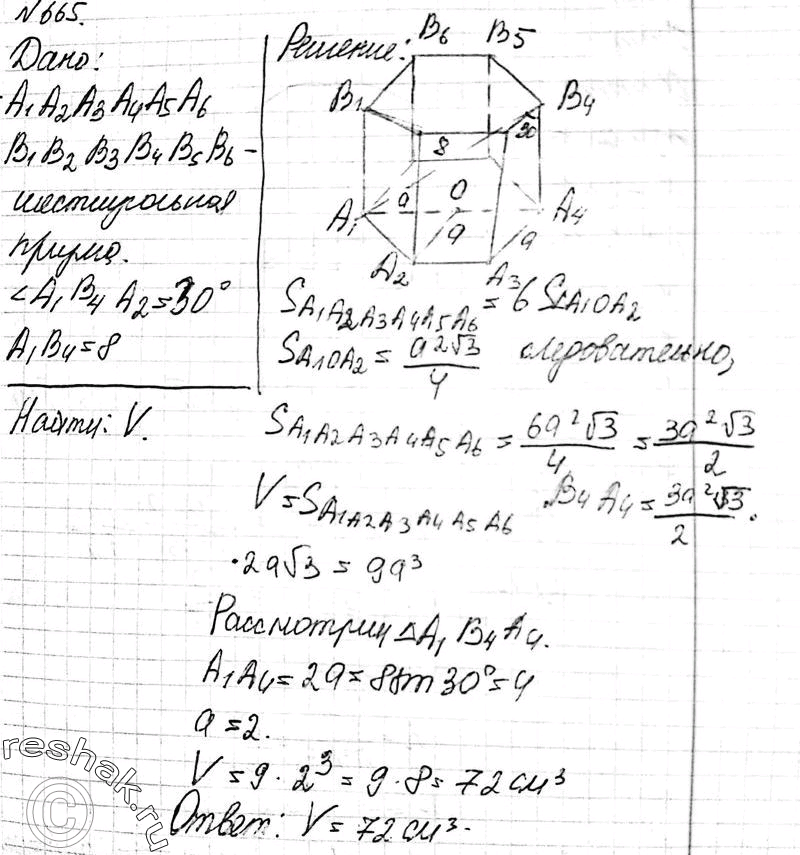 №665.
Дано:
A₁A₂A₃A₄A₅A₆
B₁B₂B₃B₄B₅B₆ –
шестиугольная
призма.
∠A₁B₄A₂=30°
A₁B₄=8
Найти: V.
Решение:
B₆ B₅
B₁ B₄
30
8
a O
A₁ A₄
a a
A₂ A₃
S A₁A₂A₃A₄A₅A₆ = 6 S A₁OA₂
S A₁OA₂ = a²√3/4 следовательно,
S A₁A₂A₃A₄A₅A₆ = 6a²√3/4 = 3a²√3/2
V = S A₁A₂A₃A₄A₅A₆ · B₄A₄ = 3a²√3/2 ·
· 2a√3 = 9a³
Рассмотрим △A₁B₄A₄.
A₁A₄ = 2a = 8sin30° = 4
a = 2.
V = 9 · 2³ = 9 · 8 = 72 см³
Ответ: V = 72 см³.
reshak.ru
©